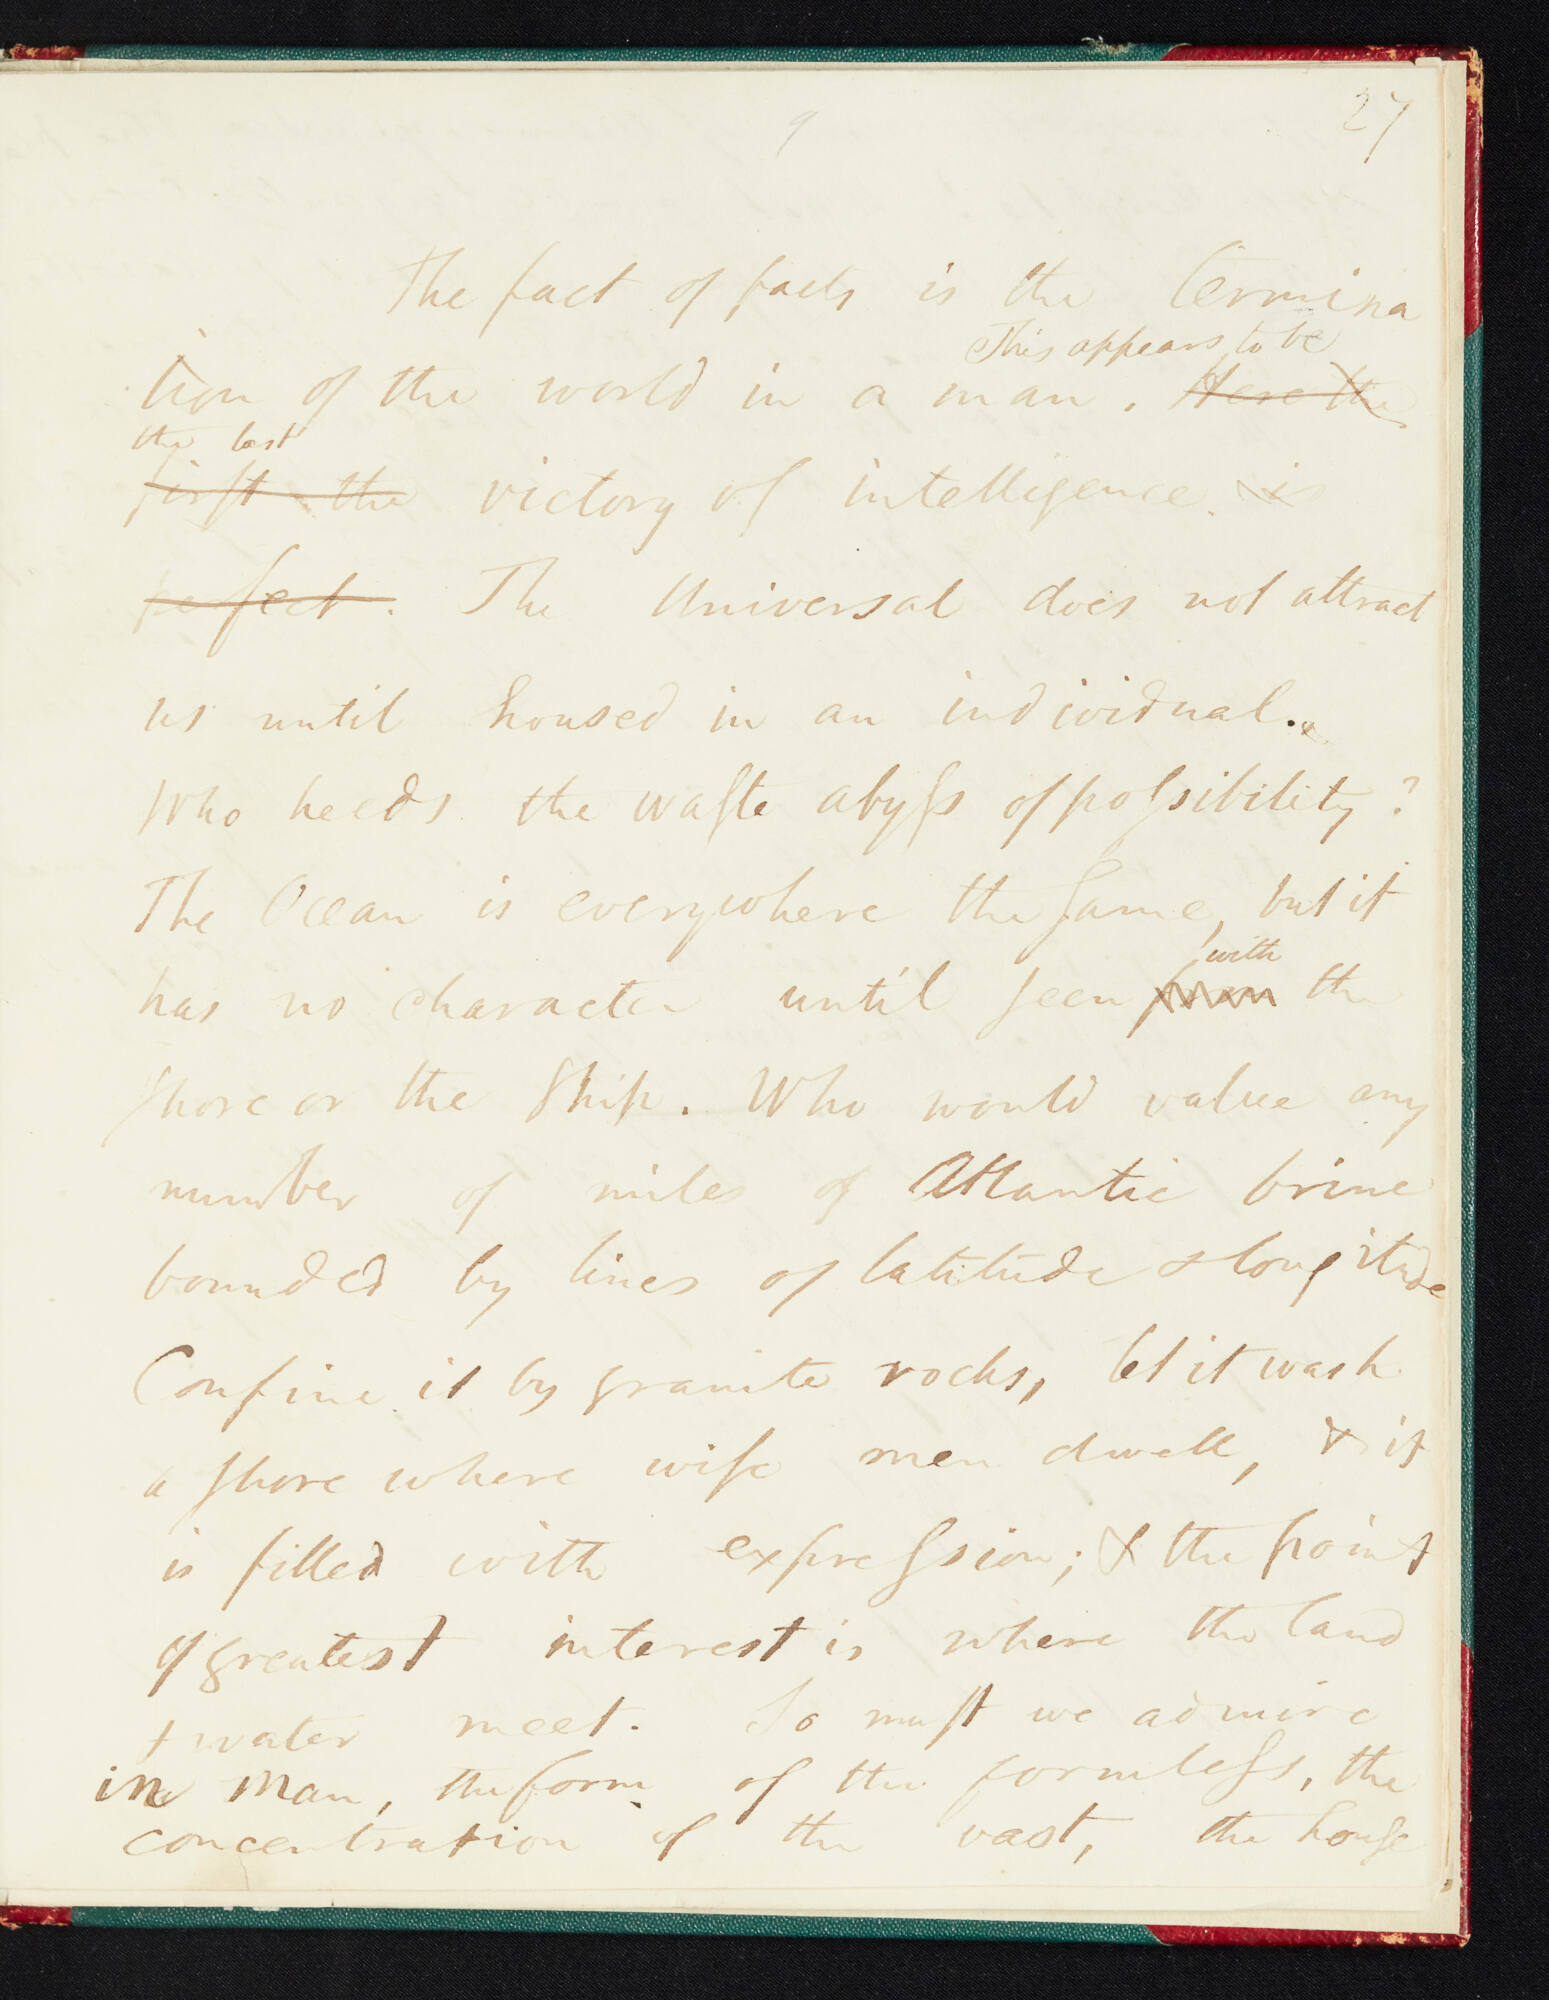 9
27
The fact of facts is the termina
This appears to be
tion of the world in a man. Here the
the last
first the victory of intelligence. is
perfect. The Universal does not attract
us until housed in an individual.
Who heeds the waste abyss of possibility?
The Ocean is everywhere the same, but it
with
has no character until seen from the
shore or the Ship. Who would value any
number of miles of Atlantic brine
bounded by lines of latitude & longitude
Confine it by granite rocks, let it wash
a shore where wise men dwell, & it
is filled with expression; & the point
of greatest interest is where the land
& water meet. So must we admire
in Man, the form of the formless, the
concentration of the vast, the house